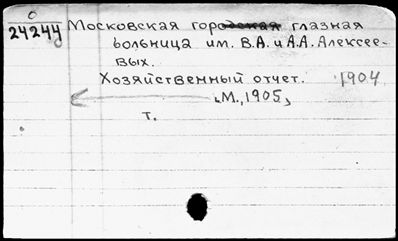 0
24244 Московская городская глазная
больница им. В.А. и А.А. Алексее-
вых.
Хозяйственный отчет. 1904
М., 1905,
т.